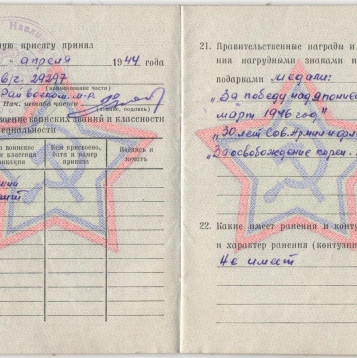 ную присягу принял
апреля 1944 года
в/ч. 29297
(наименование части)
Нач. штаба части
(звание, подпись)
своение воинских званий и классности
специальности
Кем присвоено,
дата и номер
приказа
Подпись и
печать
21. Правительственные награды и
ния нагрудными знаками и
подарками медали:
„За победу над Японией
март 1946 год"
„30 лет Сов. Армии и фло
„За освобождение Кореи
22. Какие имеет ранения и конту
и характер ранения (контузии
Не имеет